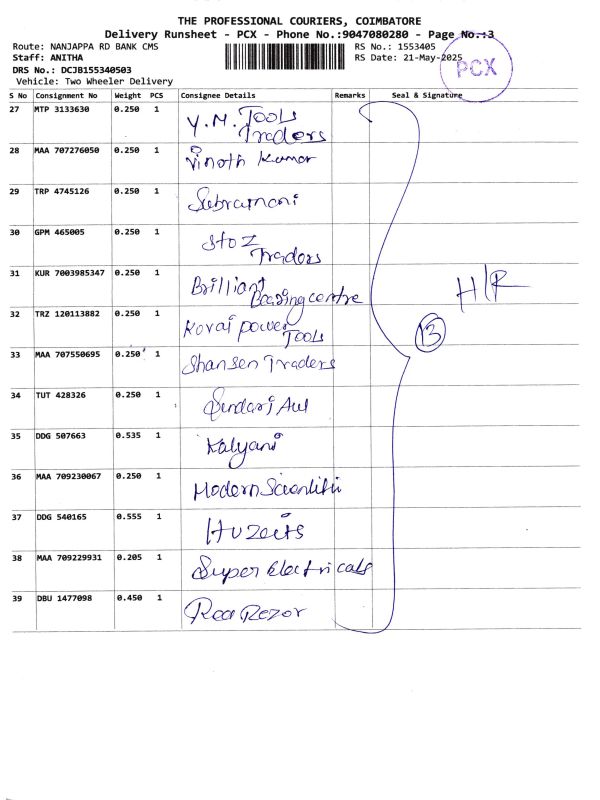 THE PROFESSIONAL COURIERS, COIMBATORE
Delivery Runsheet - PCX - Phone No.:9047080280 - Page No.:3
Route: NANJAPPA RD BANK CMS RS No.: 1553405
Staff: ANITHA RS Date: 21-May-2025
DRS No.: DCJB155340503
Vehicle: Two Wheeler Delivery
PCX
S No Consignment No Weight PCS Consignee Details Remarks Seal & Signature
27 MTP 3133630 0.250 1 Y.M. Tools
Traders
28 MAA 707276050 0.250 1 Vinoth Kumar
29 TRP 4745126 0.250 1 Subramani
30 GPM 465005 0.250 1 StoZ
Traders
31 KUR 7003985347 0.250 1 Brilliant
Bearing centre
H/R
32 TRZ 120113882 0.250 1 Kovai power
Tools
13
33 MAA 707550695 0.250 1 Shansen Traders
34 TUT 428326 0.250 1
35 DDG 507663 0.535 1 Kalyani
36 MAA 709230067 0.250 1 Modern Scientific
37 DDG 540165 0.555 1
38 MAA 709229931 0.205 1 Super Electricals
39 DBU 1477098 0.450 1